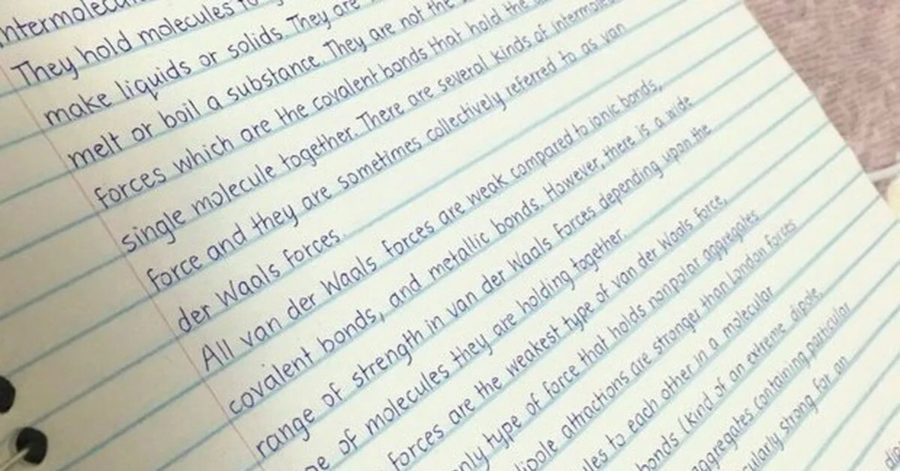 They hold molecules
make liquids or solids. They are
melt or boil a substance. They are not the
forces which are the covalent bonds that hold the
single molecule together. There are several kinds of
force and they are sometimes collectively referred to as van
der Waals forces.
All van der Waals forces are weak compared to ionic bonds,
covalent bonds, and metallic bonds. However, there is a wide
range of strength in van der Waals forces depending upon the
of molecules they are holding together.
forces are the weakest type of van der Waals force,
type of force that holds nonpolar aggregates
attractions are stronger than London forces
to each other in a molecular
bonds (kind of an extreme dipole
aggregates containing particular
strong for an